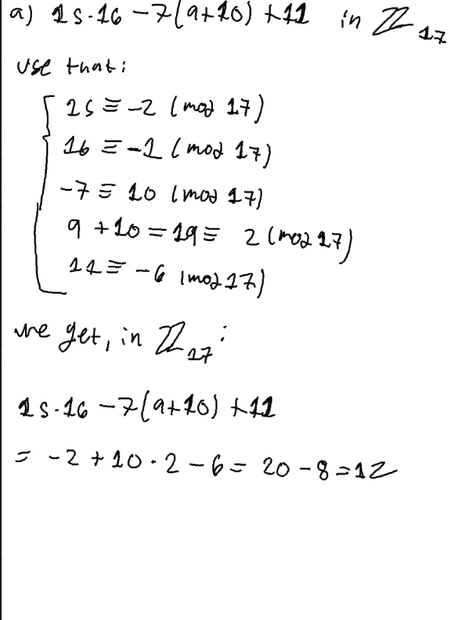 a) 15·16 −7(9+10) +11 in ℤ₁₇
use that:
15 ≡ −2 (mod 17)
16 ≡ −1 (mod 17)
−7 ≡ 10 (mod 17)
9 +10 = 19 ≡ 2 (mod 17)
11 ≡ −6 (mod 17)
we get, in ℤ₁₇:
15·16 −7(9+10) +11
= −2 + 10 · 2 − 6 = 20 − 8 = 12